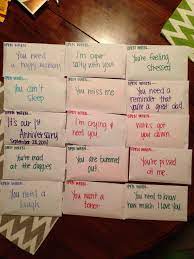 OPEN WHEN...
You need
a happy memory
OPEN WHEN...
I'm super
salty with you!!
OPEN WHEN...
You're feeling
stressed
OPEN WHEN...
You can't
sleep
OPEN WHEN...
You miss me
OPEN WHEN...
You need a
reminder that
you're a great dad
OPEN WHEN...
It's our 1st
Anniversary
September
OPEN WHEN...
I'm crying &
need you.
OPEN WHEN...
Work's got
you down.
OPEN WHEN...
You're mad
at the doggies
OPEN WHEN...
You are bummed
out
OPEN WHEN...
You're pissed
at me.
OPEN WHEN...
You need a
laugh
OPEN WHEN...
You want a
OPEN WHEN...
You need to know
how much I love you